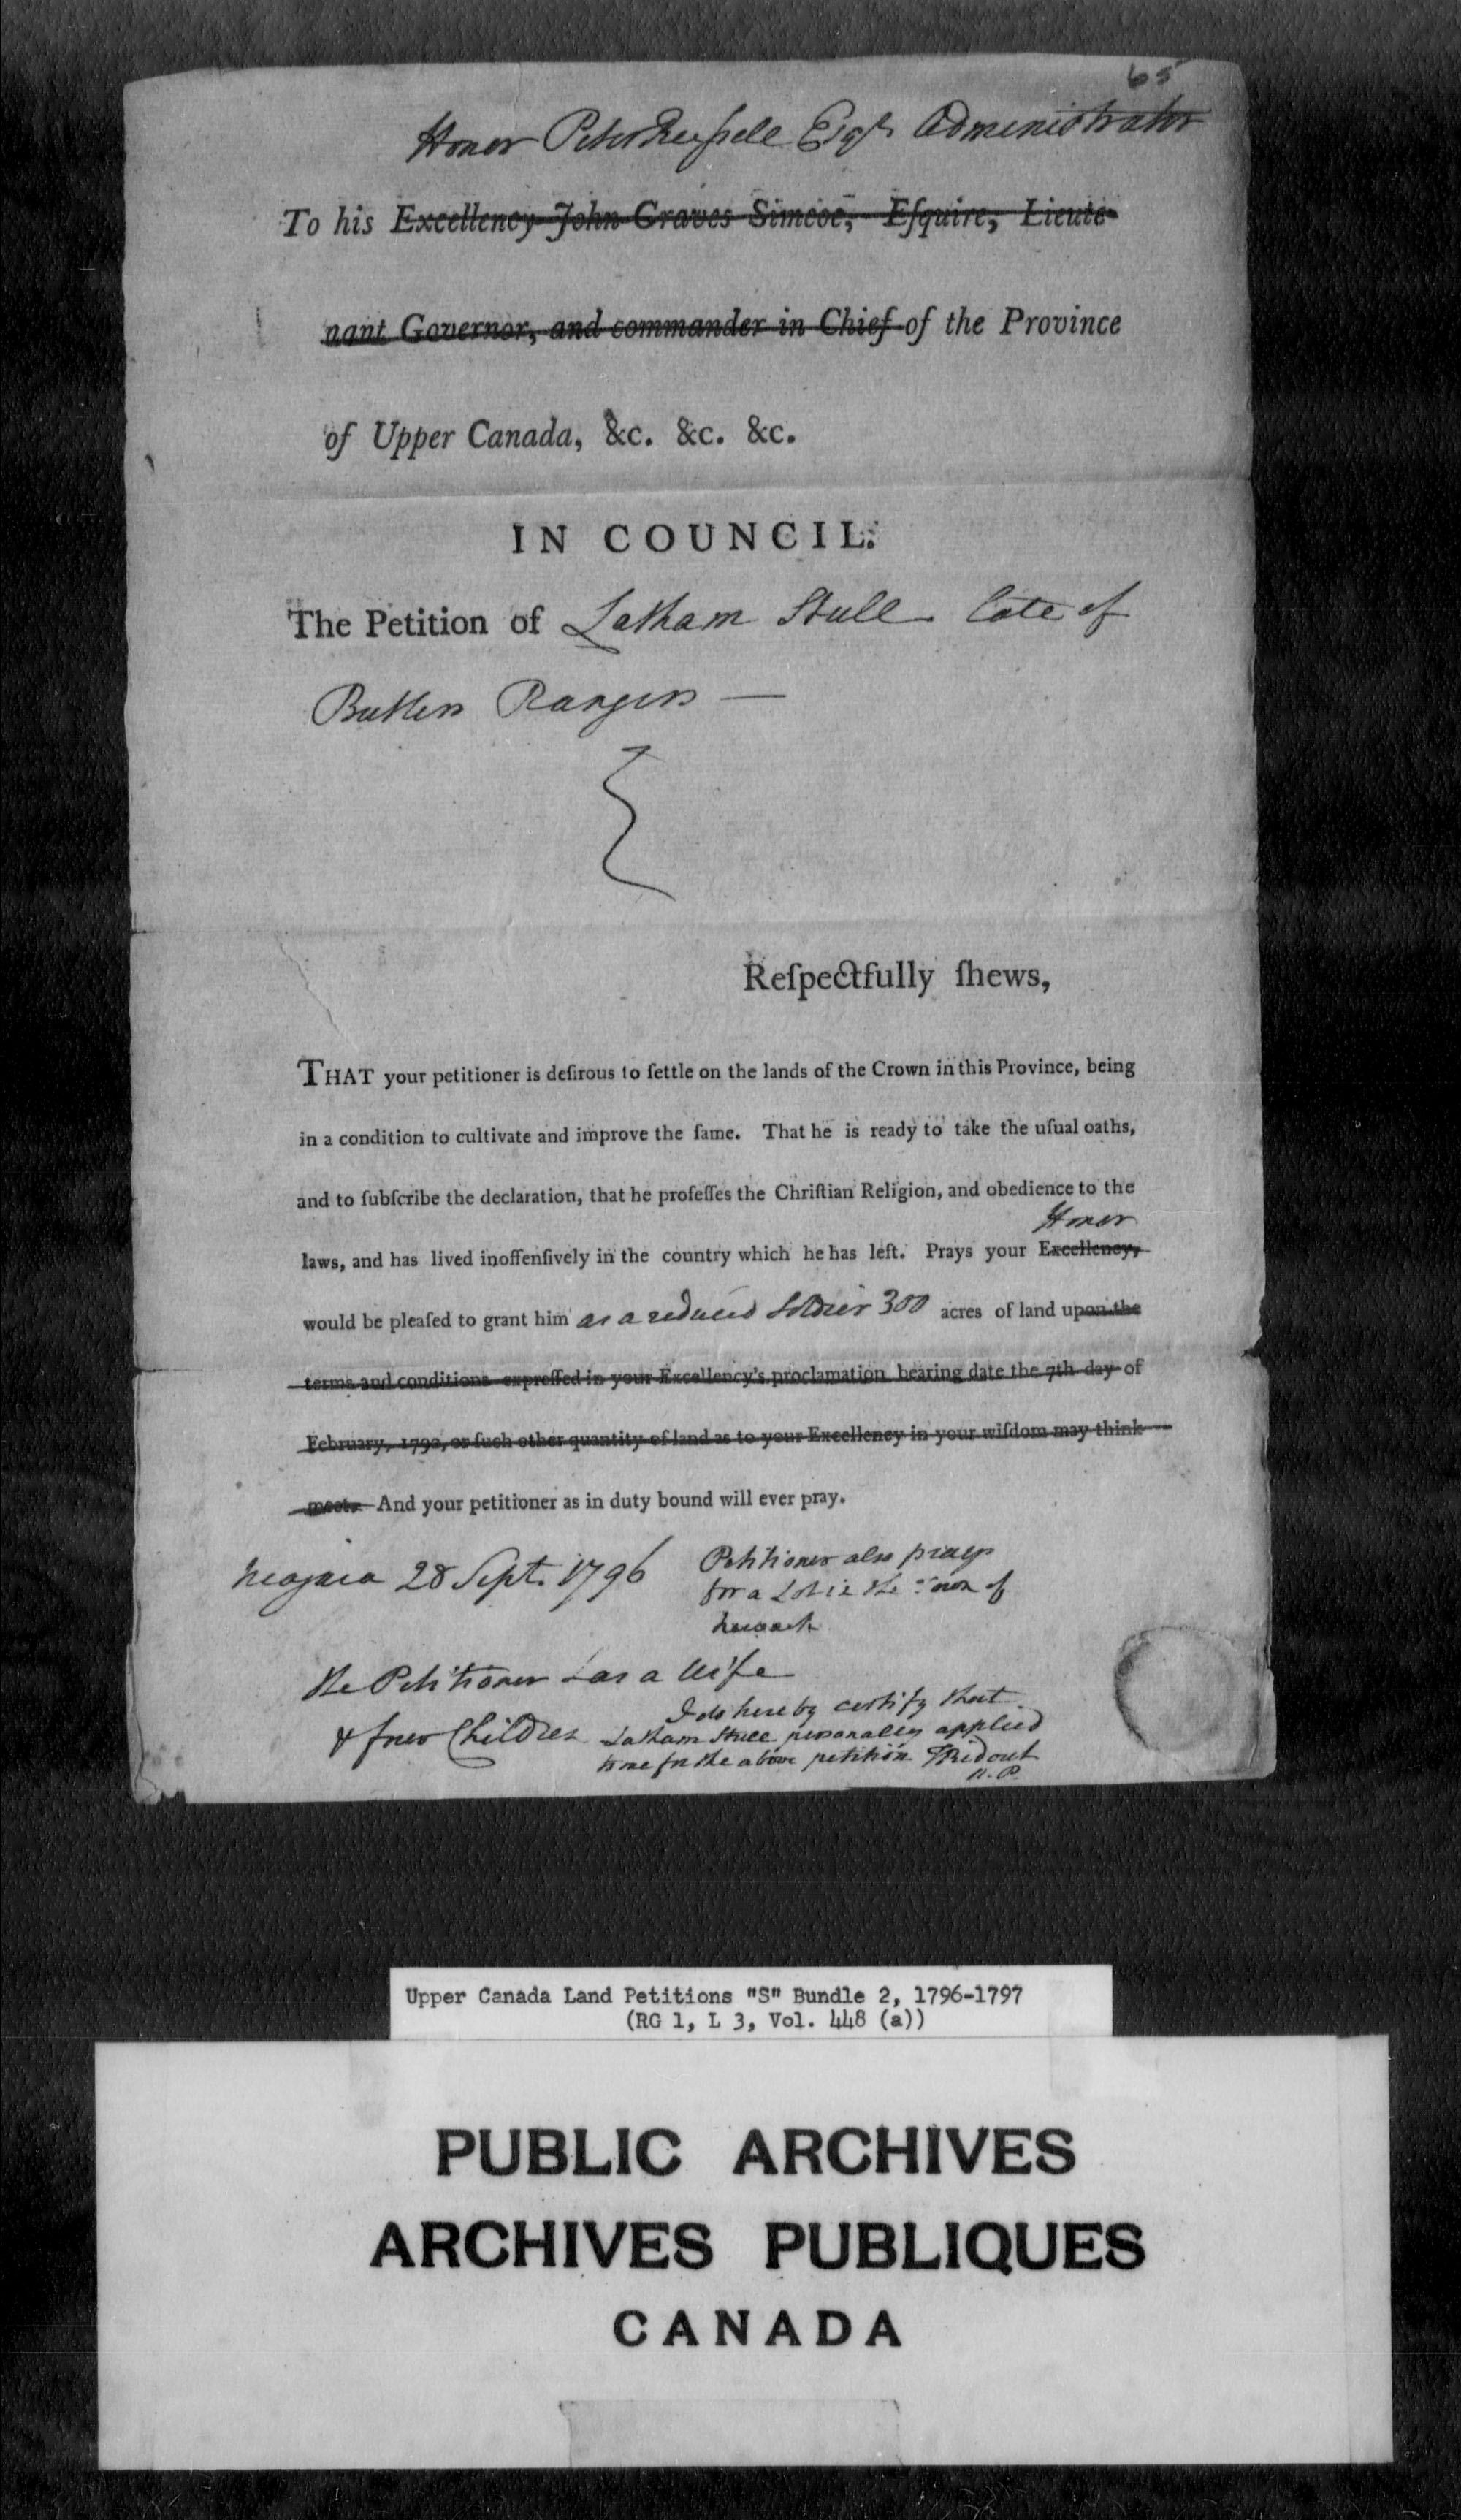 65
Honor Peter Russell Esqr Administrator
To his Excellency John Graves Simcoe, Eſquire, Lieute-
nant Governor, and commander in Chief of the Province
of Upper Canada, &c. &c. &c.
IN COUNCIL:
The Petition of Latham Stull late of
Butlers Rangers —
Reſpectfully ſhews,
THAT your petitioner is deſirous to ſettle on the lands of the Crown in this Province, being
in a condition to cultivate and improve the ſame. That he is ready to take the uſual oaths,
and to ſubſcribe the declaration, that he profeſſes the Chriſtian Religion, and obedience to the
Honor
laws, and has lived inoffenſively in the country which he has left. Prays your Excellency,
would be pleaſed to grant him as a reduced Soldier 300 acres of land upon the
terms and conditions expreſſed in your Excellency's proclamation bearing date the 7th day of
February, 1792, or ſuch other quantity of land as to your Excellency in your wiſdom may think
meet. And your petitioner as in duty bound will ever pray.
Niagara 28 Sept. 1796
Petitioner also prays
for a Lot in the Town of
Newark
The Petitioner has a Wife
& four Children
I do hereby certify that
Latham Stull personally applied
to me for the above petition TRidout
N.P.
Upper Canada Land Petitions "S" Bundle 2, 1796-1797
(RG 1, L 3, Vol. 448 (a))
PUBLIC ARCHIVES
ARCHIVES PUBLIQUES
CANADA